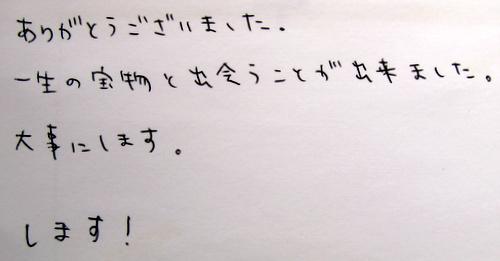 ありがとうございました.
一生の宝物と出会うことが出来ました。
大事にします。
します!